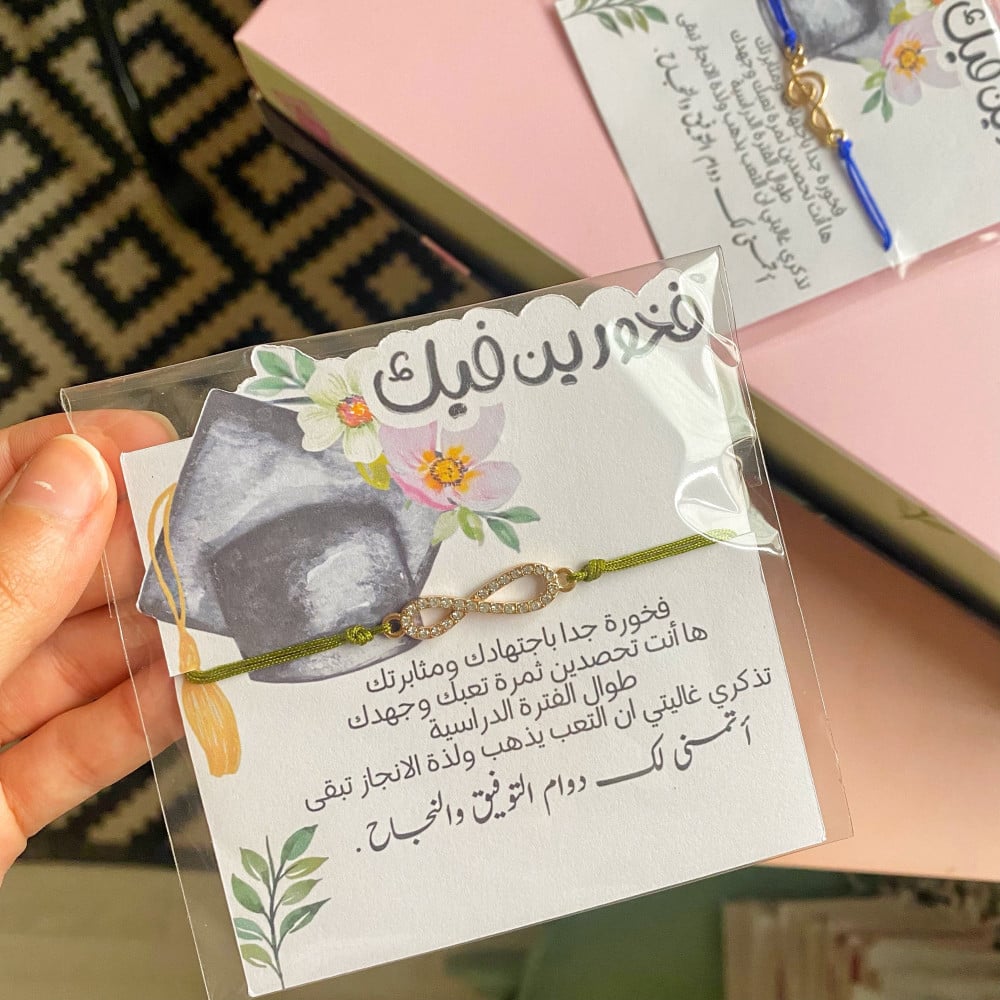 فخورين فيك
فخورة جدا باجتهادك ومثابرتك
ها أنت تحصدين ثمرة تعبك وجهدك
طوال الفترة الدراسية
تذكري غاليتي ان التعب يذهب ولذة الانجاز تبقى
أتمنى لك دوام التوفيق والنجاح.
فيك
فخورة جدا
ها أنت تحصدين ثمرة تعبك وجهدك
طوال الفترة الدراسية
تذكري غاليتي ان التعب يذهب ولذة الانجاز تبقى
أتمنى لك دوام التوفيق والنجاح.